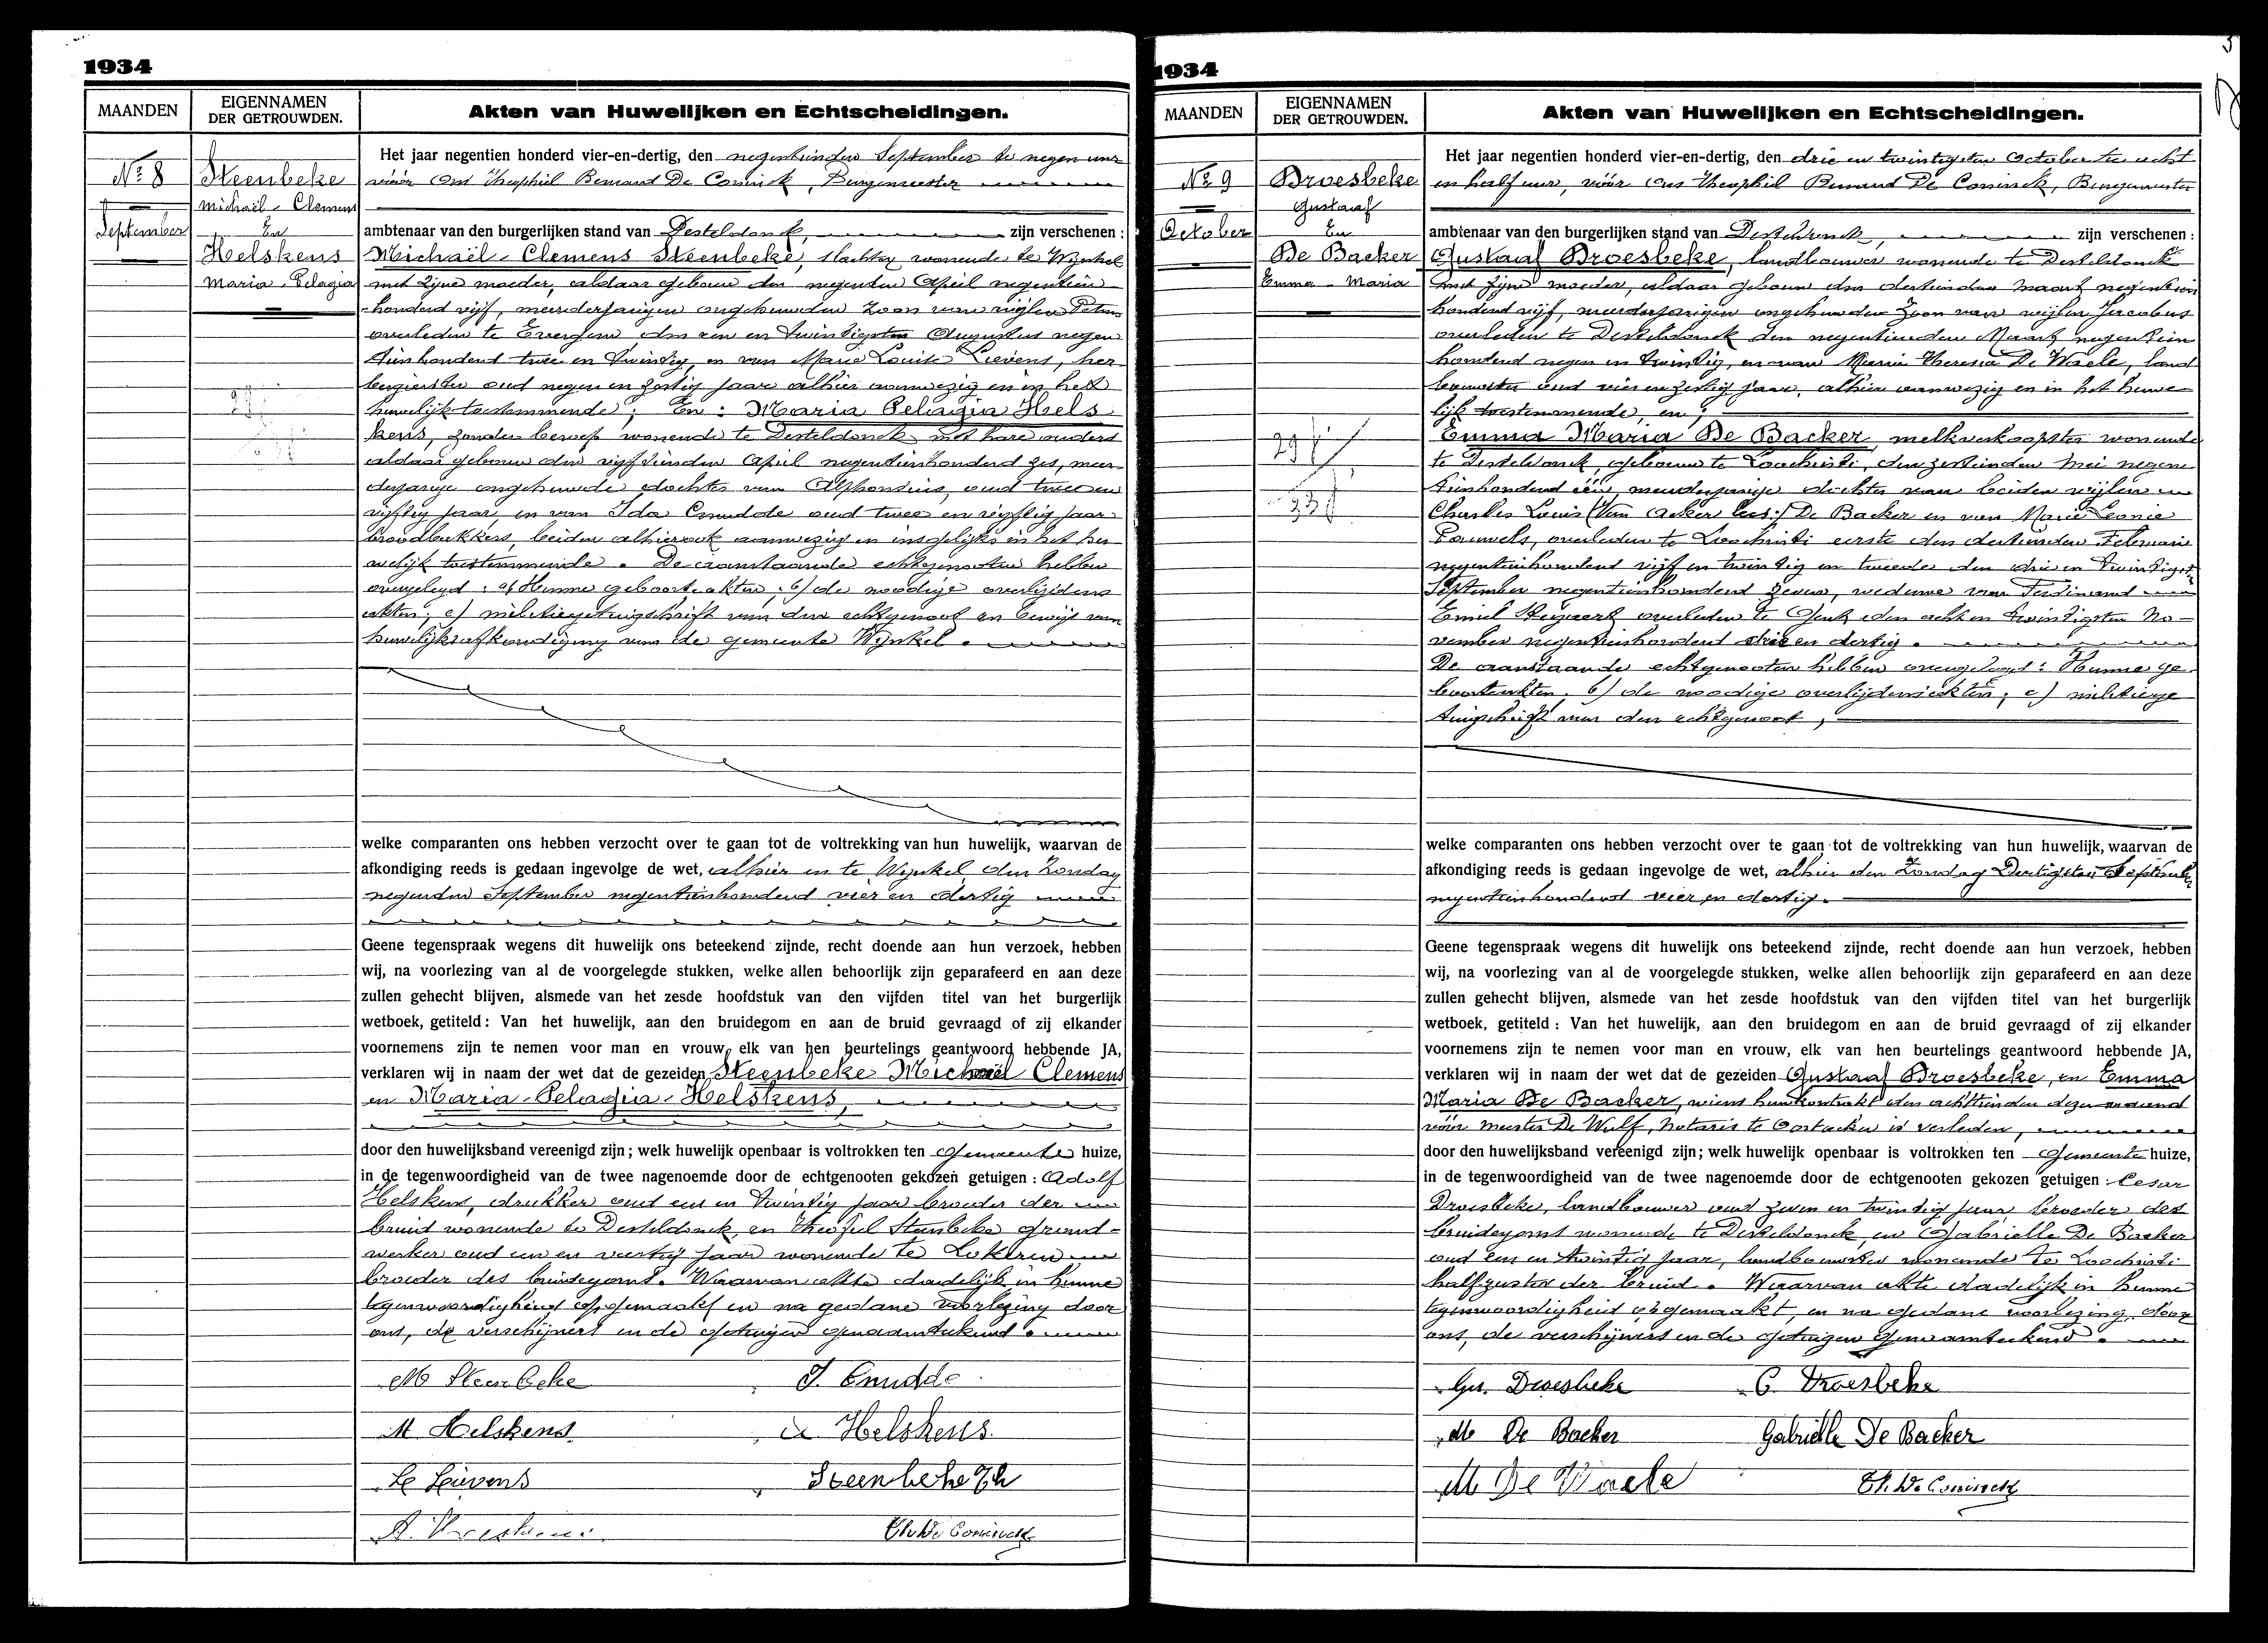 1934
MAANDEN
EIGENNAMEN
DER GETROUWDEN.
Akten van Huwelijken en Echtscheidingen.
No 8
September
Steenbeke
Michaël-Clemens
En
Helskens
Maria-Pelagia
Het jaar negentien honderd vier-en-dertig, den negentienden September te negen uur
vóór Ons Theophiel Bernard De Coninck, Burgemeester
ambtenaar van den burgerlijken stand van Desteldonck, zijn verschenen :
Michaël-Clemens Steenbeke, slachter wonende te Wynkel
met zijne moeder, aldaar geboren den negenden April negentien
honderd vijf, meerderjarigen ongehuwden zoon van wijlen Petrus
overleden te Evergem, den een en twintigsten Augustus negen
tienhonderd twee en twintig, en van Marie Louise Lievens, her
bergierster oud negen en zestig jaar alhier aanwezig en in het
huwelijk toestemmende; En: Maria Pelagia Hels
kens, zonder beroep wonende te Desteldonck met hare ouders
aldaar geboren den vijftienden April negentienhonderd zes, meer
derjarige ongehuwde dochter van Alphonsius, oud twee en
vijftig jaar, en van Ida Cnudde oud twee en vijftig jaar
broodbakkers, beiden alhier ook aanwezig en insgelijks in het hu
welijk toestemmende. De aanstaande echtgenooten hebben
overgelegd: a/ Hunne geboorteakten, b/ de noodige overlijdens
akten; c/ militiegetuigschrift van den echtgenoot en bewijs van
huwelijksafkondiging van de gemeente Wynkel.
welke comparanten ons hebben verzocht over te gaan tot de voltrekking van hun huwelijk, waarvan de
afkondiging reeds is gedaan ingevolge de wet, alhier en te Wynkel, den Zondag
negenden September negentienhonderd vier en dertig
Geene tegenspraak wegens dit huwelijk ons beteekend zijnde, recht doende aan hun verzoek, hebben
wij, na voorlezing van al de voorgelegde stukken, welke allen behoorlijk zijn geparafeerd en aan deze
zullen gehecht blijven, alsmede van het zesde hoofdstuk van den vijfden titel van het burgerlijk
wetboek, getiteld : Van het huwelijk, aan den bruidegom en aan de bruid gevraagd of zij elkander
voornemens zijn te nemen voor man en vrouw, elk van hen beurtelings geantwoord hebbende JA,
verklaren wij in naam der wet dat de gezeiden Steenbeke Michaël Clemens
en Maria-Pelagia-Helskens,
door den huwelijksband vereenigd zijn; welk huwelijk openbaar is voltrokken ten gemeente huize,
in de tegenwoordigheid van de twee nagenoemde door de echtgenooten gekozen getuigen : Adolf
Helskens, drukker oud een en twintig jaar broeder der
bruid wonende te Desteldonck, en Theofiel Steenbeke grond-
werker oud een en veertig jaar wonende te Lokeren
broeder des bruidegoms. Waarvan akte dadelijk in hunne
tegenwoordigheid opgemaakt en na gedane voorlezing door
ons, de verschijners en de getuigen genaamteekend.
M Steenbeke
J. Cnudde
M Helskens
A Helskens
L Lievens
Steenbeke Th
Th. De Coninck
1934
MAANDEN
EIGENNAMEN
DER GETROUWDEN.
Akten van Huwelijken en Echtscheidingen.
No 9
October
Droesbeke
Gustaaf
En
De Backer
Emma-Maria
Het jaar negentien honderd vier-en-dertig, den drie en twintigsten October te acht
en half uur, vóór ons Theophiel Bernard De Coninck, Burgemeester
ambtenaar van den burgerlijken stand van Desteldonck, zijn verschenen :
Gustaaf Droesbeke, landbouwer wonende te Desteldonck
met zijne moeder, aldaar geboren den dertienden Maart negentien
honderd vijf, meerderjarigen ongehuwden zoon van wijlen Jacobus
overleden te Desteldonck den negentienden Maart negentien
honderd negen en twintig, en van Maria Theresia De Waele, land
bouwster oud vier en zestig jaar, alhier aanwezig en in het huwe
lijk toestemmende, en;
Emma Maria De Backer, melkverkoopster wonende
te Desteldonck, geboren te Loochristi, den zestienden Mei negen
tienhonderd één, meerderjarige dochter van beiden wijlen
Charles Louis (Van Acker lees:) De Backer en van Marie Leonie
Pauwels, overleden te Loochristi eerste den dertienden Februari
negentienhonderd vijf en twintig en tweede den drie en twintigsten
September negentienhonderd zeven, weduwe van Ferdinand
Emiel Steyaert overleden te Gent den acht en twintigsten No-
vember negentienhonderd drie en dertig.
De aanstaande echtgenooten hebben overgelegd: Hunne ge
boorteakten, b/ de noodige overlijdensakten; c/ militiege
tuigschrift van den echtgenoot,
welke comparanten ons hebben verzocht over te gaan tot de voltrekking van hun huwelijk, waarvan de
afkondiging reeds is gedaan ingevolge de wet, alhier den Zondag Dertigsten September
negentienhonderd vier en dertig.
Geene tegenspraak wegens dit huwelijk ons beteekend zijnde, recht doende aan hun verzoek, hebben
wij, na voorlezing van al de voorgelegde stukken, welke allen behoorlijk zijn geparafeerd en aan deze
zullen gehecht blijven, alsmede van het zesde hoofdstuk van den vijfden titel van het burgerlijk
wetboek, getiteld : Van het huwelijk, aan den bruidegom en aan de bruid gevraagd of zij elkander
voornemens zijn te nemen voor man en vrouw, elk van hen beurtelings geantwoord hebbende JA,
verklaren wij in naam der wet dat de gezeiden Gustaaf Droesbeke, en Emma
Maria De Backer, wiens huwkontrakt den achttienden dezer maand
vóór meester De Wulf, Notaris te Oostacker is verleden,
door den huwelijksband vereenigd zijn; welk huwelijk openbaar is voltrokken ten gemeente huize,
in de tegenwoordigheid van de twee nagenoemde door de echtgenooten gekozen getuigen : Cesar
Droesbeke, landbouwer oud zeven en twintig jaar, broeder des
bruidegoms wonende te Desteldonck, en Gabrielle De Backer
oud een en twintig jaar, landbouwster wonende te Loochristi
halfzuster der bruid. Waarvan akte dadelijk in hunne
tegenwoordigheid opgemaakt, en na gedane voorlezing, door
ons, de verschijners en de getuigen genaamteekend.
Gu. Droesbeke
C. Droesbeke
M De Backer
Gabrielle De Backer
M De Waele
Th. De Coninck